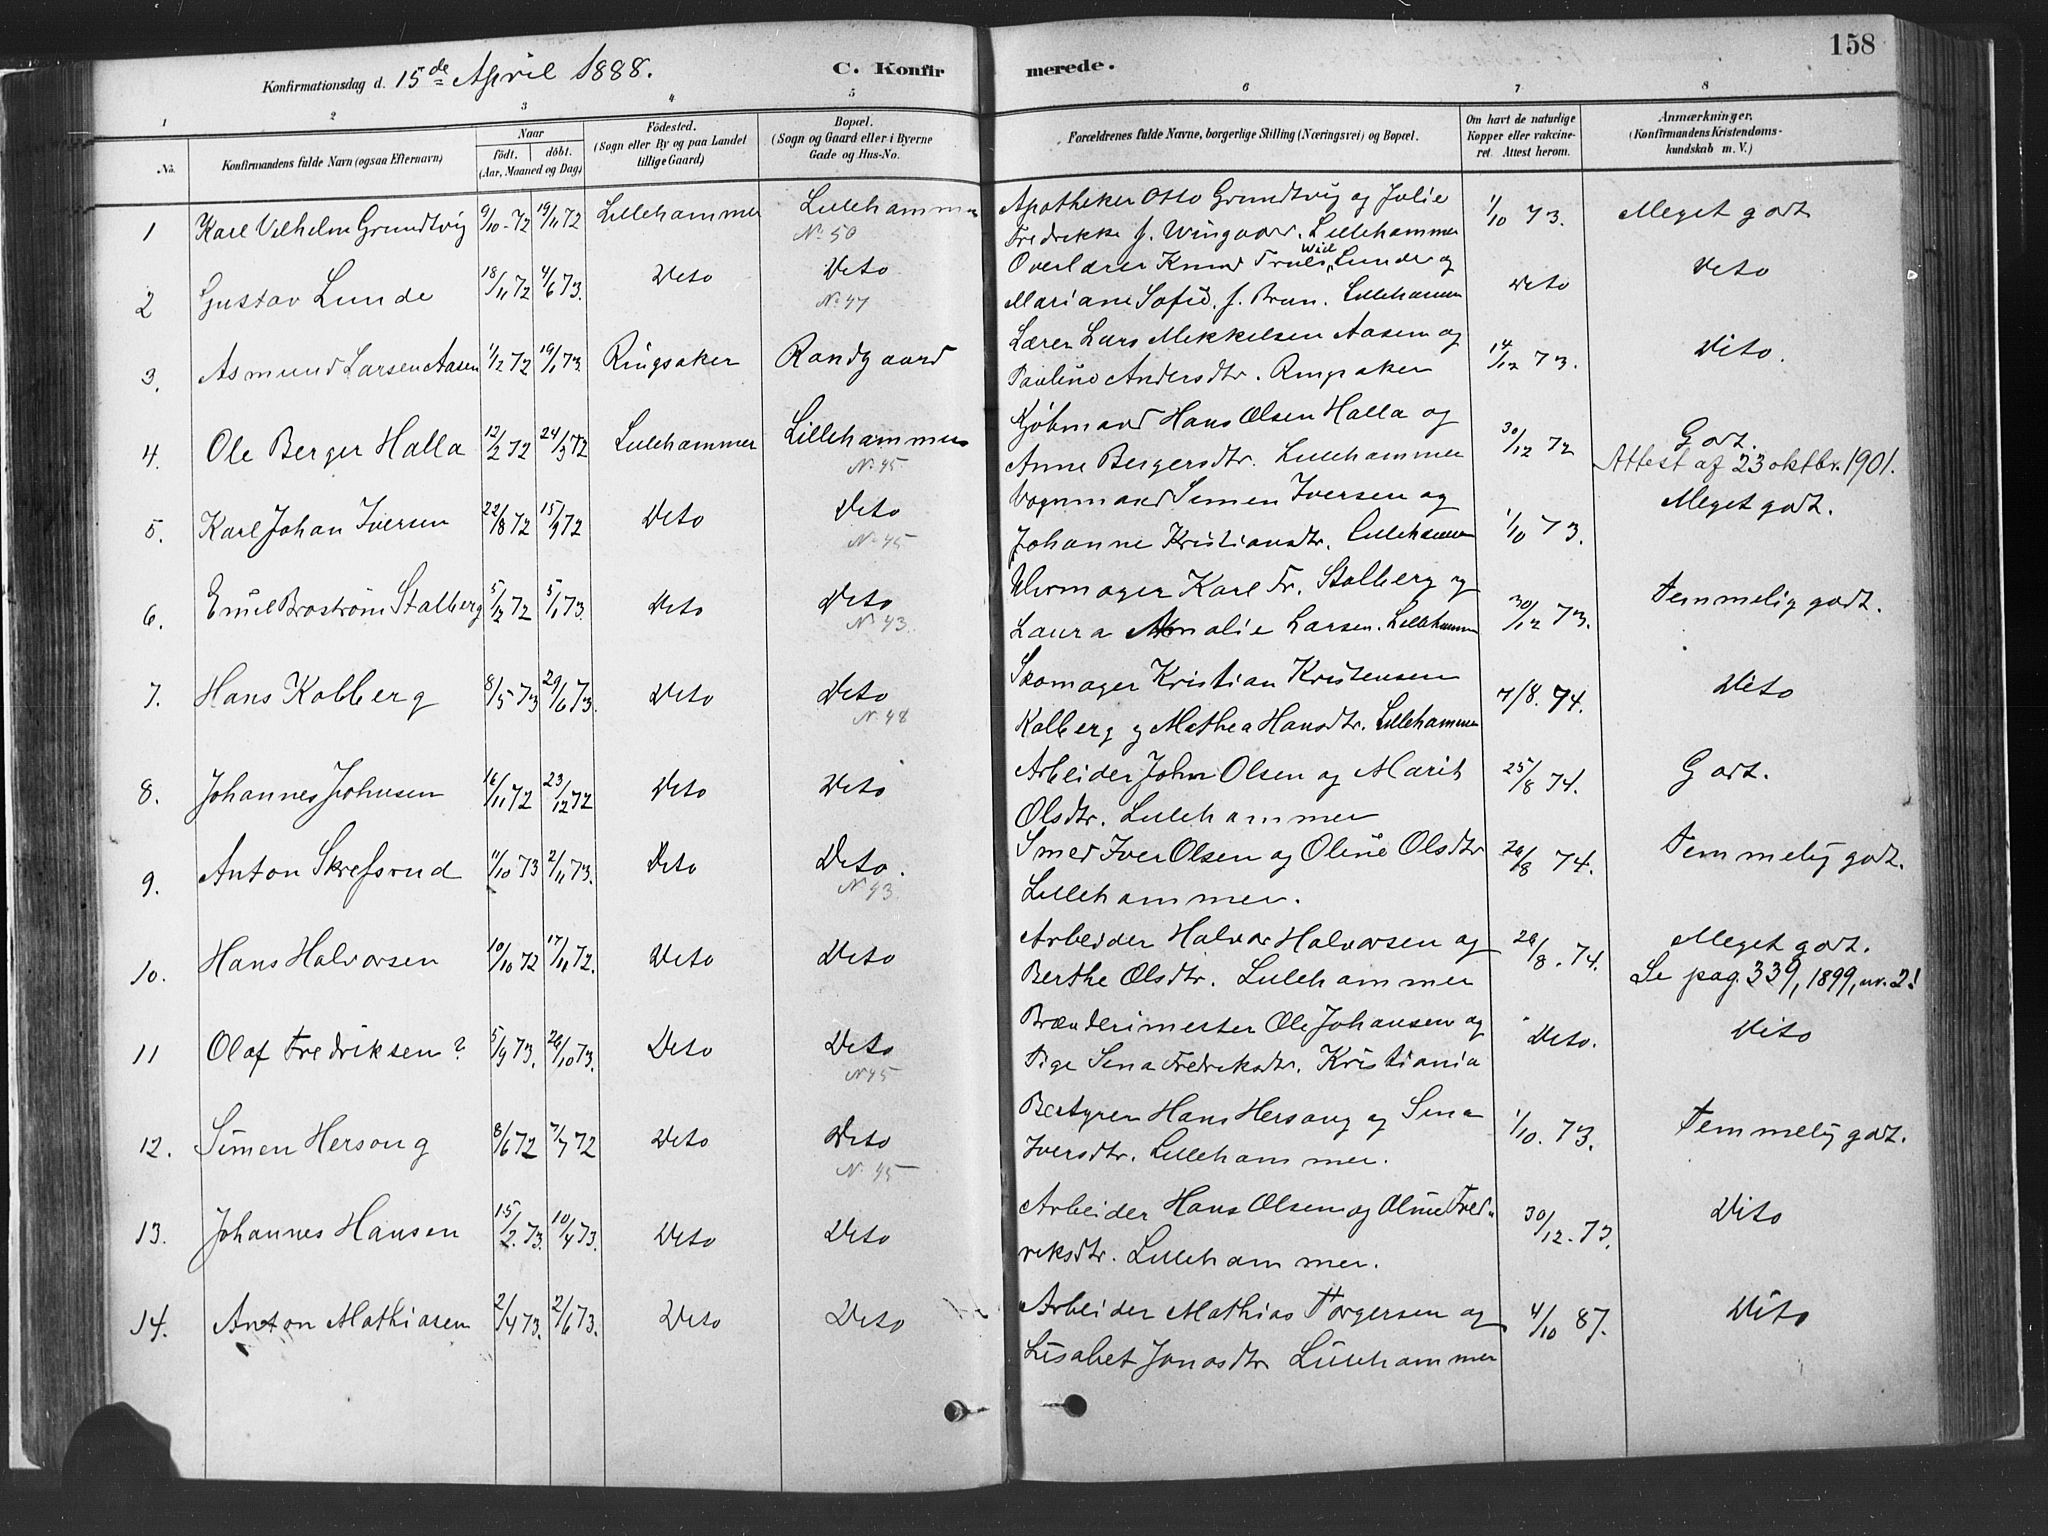 158
Konfirmationsdag d. 15de April 1888. C. Konfirmerede.
1 2 3 4 5 6 7 8
No. Konfirmandens fulde Navn (ogsaa Efternavn) Naar födt. döbt. (Aar, Maaned og Dag) Födested. (Sogn eller By og paa Landet tillige Gaard) Bopæl. (Sogn og Gaard eller i Byerne Gade og Hus-No. Forældrenes fulde Navne, borgerlige Stilling (Næringsvei) og Bopæl. Om havt de naturlige Kopper eller vakcineret. Attest herom. Anmærkninger. (Konfirmandens Kristendomskundskab m. V.)
1 Karl Vilhelm Grundtvig 9/10-72 19/11 72 Lillehammer Lillehammer Apotheker Otto Grundtvig og Julie 1/10 73. Meget godt
N. 50 Fredrikke f. Wingaar. Lillehammer
2 Gustav Lunde 18/11 72 4/6 73. Dito Dito Overlærer Knud Truls Wiel Lunde og Dito Dito
N. 47 Mariane Sofie f. Brun. Lillehammer
3. Asmund Larsen Aasen 1/12 72 19/1 73 Ringsaker Randgaard Lærer Lars Mikkelsen Aasen og 14/12 73. Dito.
Pauline Andersdtr. Ringsaker
4. Ole Berger Halla 12/2 72 24/3 72 Lillehammer Lillehammer Kjöbmand Hans Olsen Halla og 30/12 72 Godt.
N. 45. Anne Bergersdtr. Lillehammer Attest af 23 oktbr. 1901.
5. Karl Johan Iversen 22/8 72 15/9 72 Dito Dito Vognmand Simen Iversen og 1/10 73. Meget godt.
N. 45 Johanne Kristiansdtr. Lillehammer
6. Emil Broström Stalberg 5/12 72 5/1 73. Dito Dito Uhrmager Karl Fr. Stalberg og 30/12 73. Temmelig godt.
N. 43. Laura Amalie Larsen. Lillehammer
7. Hans Kolberg 8/5 73 29/6 73. Dito Dito Skomager Kristian Kristensen 7/8. 74. Dito
N. 48 Kolberg og Mathea Hansdtr. Lillehammer
8. Johannes Johnsen 16/11 72 23/12 72 Dito Dito Arbeider John Olsen og Marit 25/8 74. Godt.
Olsdtr. Lillehammer
9. Anton Skrefsrud 11/10 73 2/11 73. Dito Dito. Smed Iver Olsen og Oline Olsdtr 26/8 74. Temmelig godt.
N. 43. Lillehammer.
10. Hans Halvorsen 10/10 72 17/11 72. Dito Dito Arbeider Halvor Halvorsen og 26/8. 74. Meget godt.
Berthe Olsdtr. Lillehammer Se pag. 339, 1899, nr. 2!
11 Olaf Fredriksen? 5/9 73. 26/10 73. Dito Dito Brænderimester Ole Johansen og Dito. Dito
N 45 Pige Sina Fredriksdtr. Kristiania
12. Simen Hersoug 8/6 72 7/7 72 Dito Dito Bestyrer Hans Hersoug og Sina 1/10. 73. Temmelig godt.
N. 45 Iversdtr. Lillehammer.
13. Johannes Hansen 15/2. 73. 10/4 73. Dito Dito Arbeider Hans Olsen og Oline Fred- 30/12. 73. Dito
riksdtr. Lillehammer.
14. Anton Mathiasen 2/4 73. 2/6 73. Dito Dito Arbeider Mathias Torgersen og 4/10 87. Dito
Lisabet Jonasdtr Lillehammer